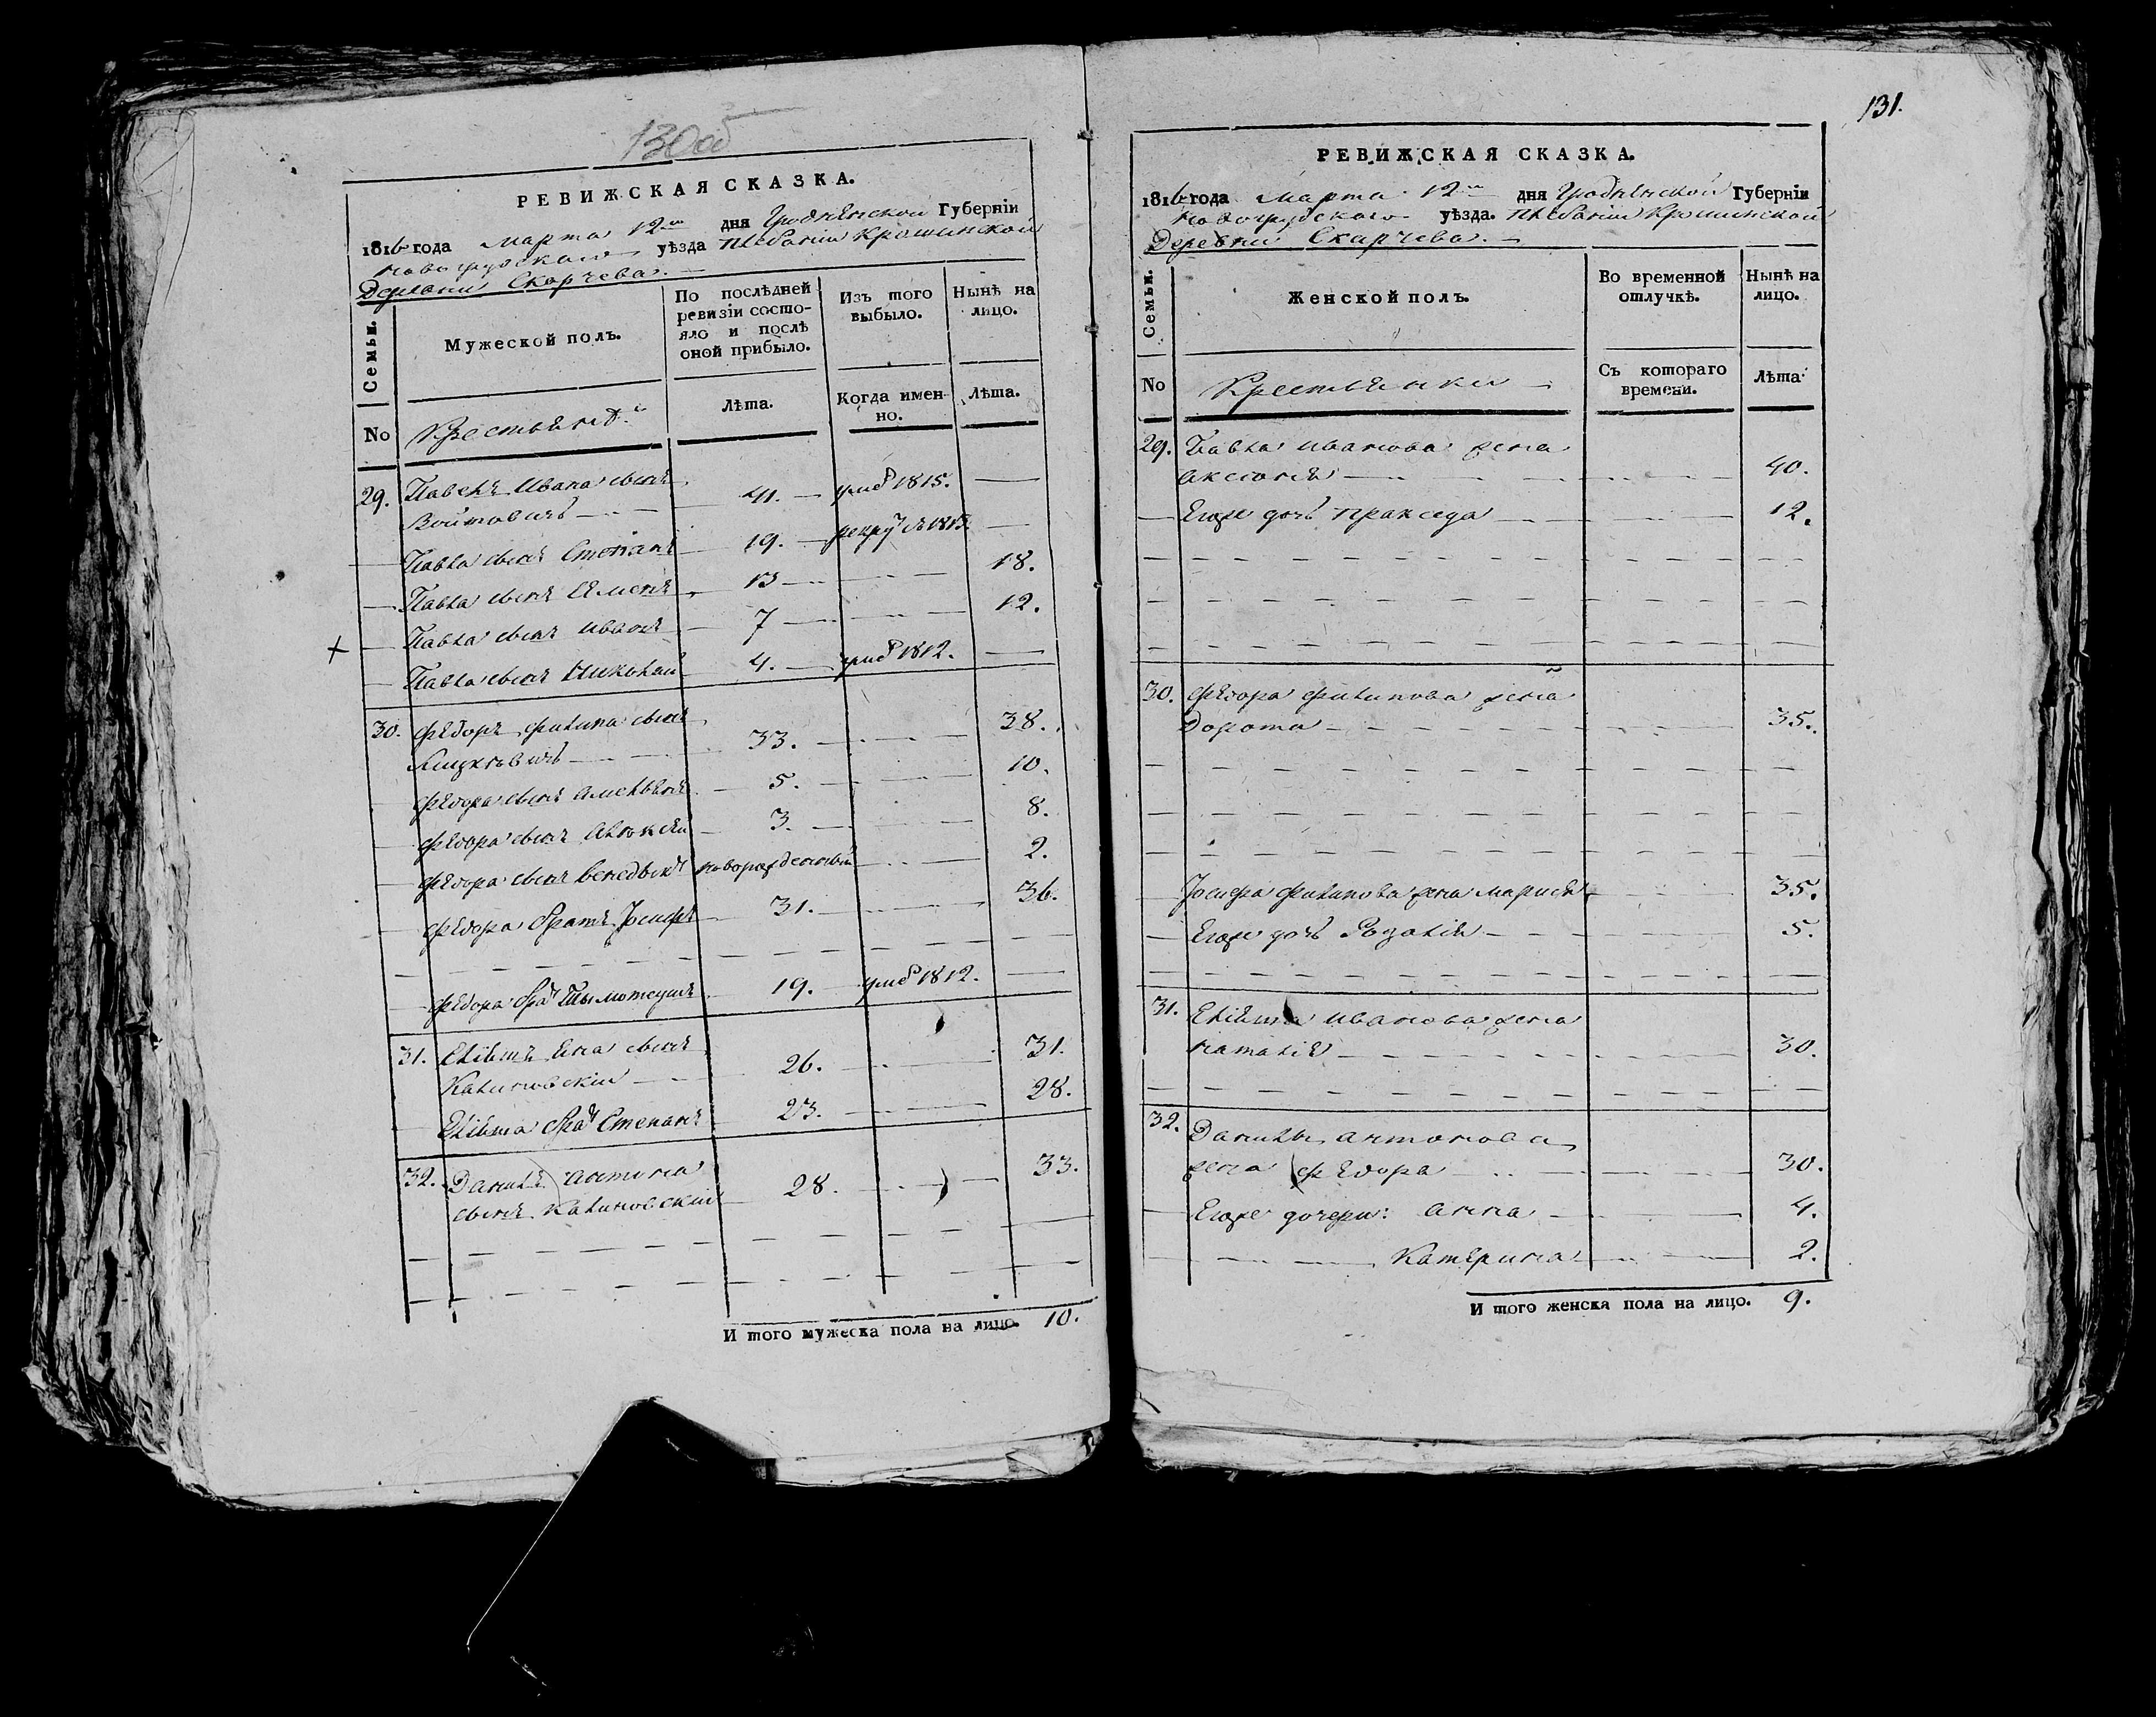 130об
РЕВИЖСКАЯ СКАЗКА.
1816 года Марта 12го дня Гроднѣнской Губерніи
Новогрудскаго уѣзда Плебаніи Крошинской
Деревни Скарчева.
Семьи.
Мужеской полъ.
По послѣдней ревизіи состояло и послѣ оной прибыло.
Изъ того выбыло.
Нынѣ на лицо.
No
Крестьянѣ
Лѣта.
Когда именно.
Лѣта.
29. Павелъ Ивана сынъ
Войтовичъ 41. умеръ 1815.
Павла сынъ Степанъ 19. рекру въ 1813.
Павла сынъ Сѣменъ 13 18.
Павла сынъ Иванъ 7 12.
Павла сынъ Николай 4. умер 1812.
30. Фѣдоръ Филипа сынъ
33. 38.
Фѣдора сынъ Амельянъ 5. 10.
Фѣдора сынъ Алѣксѣй 3. 8.
Фѣдора сынъ Венедыктъ новорожденный 2.
Фѣдора братъ Іосифъ 31. 36.
Фѣдора бра Тымотеушъ 19. умер 1812.
31. сынъ
Калиновскій 26. 31.
бра Степанъ 23. 28.
32. Данила Антона
сынъ Калиновскій 28. 33.
И того мужеска пола на лицо. 10.
131.
РЕВИЖСКАЯ СКАЗКА.
1816 года Марта 12го дня Гроднѣнской Губерніи
Новогрудскаго уѣзда. Плебаніи Крошинской
Деревни Скарчева.
Семьи.
Женской полъ.
Во временной отлучкѣ.
Нынѣ на лицо.
No
Крестьянки
Съ котораго времени.
Лѣта
29. Павла Иванова жена
Аксюня 40.
Егоже дочь Пракседа 12.
30. Фѣдора Филипова жена
Дорота 35.
Іосифа Филипова жена Марися 35.
Егоже дочь Розалія 5.
31. Иванова жена
Наталія 30.
32. Данилы Антонова
жена Фѣдора 30.
Егоже дочери: Анна 4.
Катѣрина 2.
И того женска пола на лицо. 9.